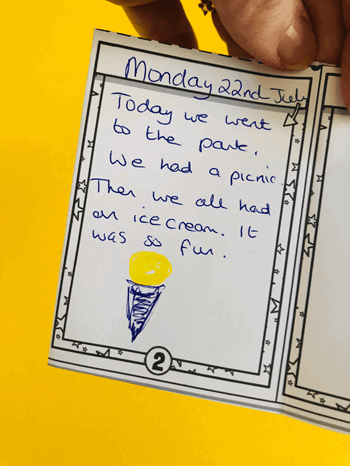 Monday 22nd July
Today we went
to the park.
We had a picnic.
Then we all had
an ice cream. It
was so fun.
2